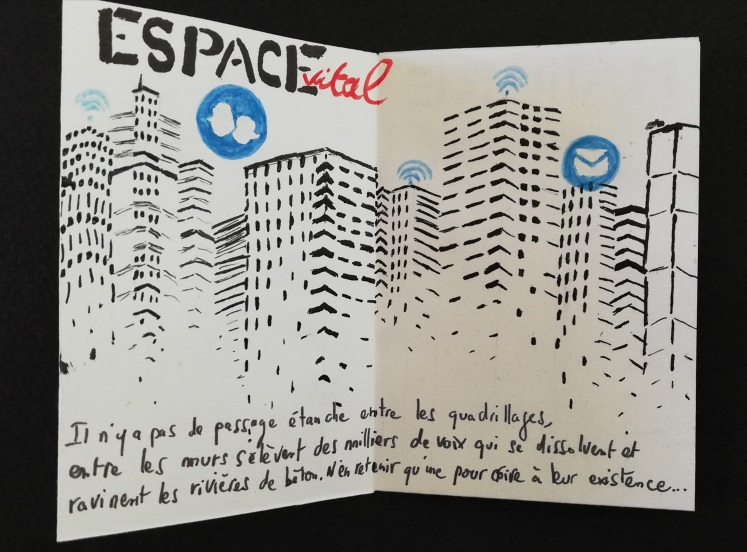 ESPACE vital
Il n'y a pas de passage étanche entre les quadrillages,
entre les murs s'élèvent des milliers de voix qui se dissolvent et
ravinent les rivières de béton. N'en retenir qu'une pour croire à leur existence...